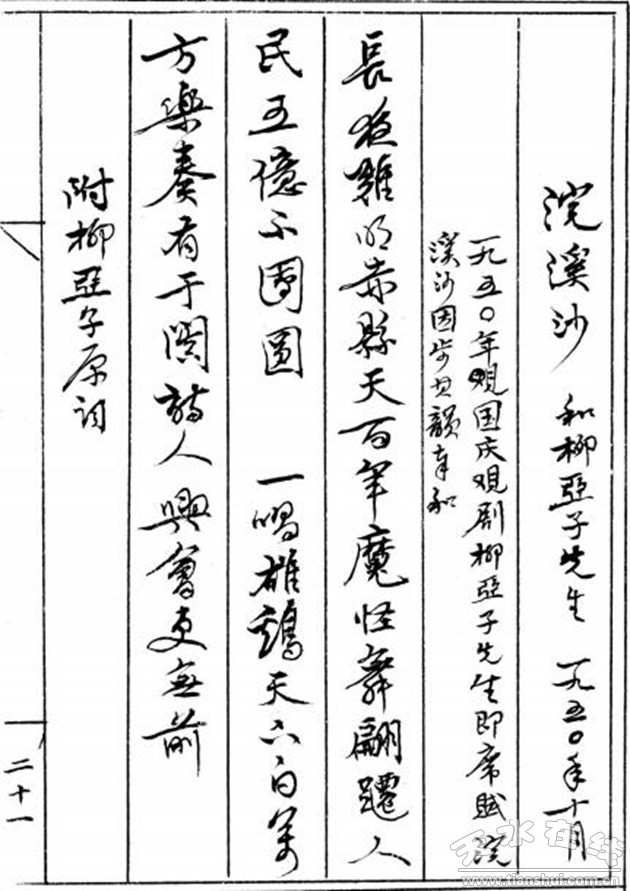 浣溪沙 和柳亞子先生 一九五〇年十月
一九五〇年观国庆观剧柳亞子先生即席賦浣
溪沙因步其韻奉和
長夜難明赤縣天百年魔怪舞翩躚人
民五億不團圓 一唱雄鷄天下白萬
方樂奏有于闐詩人興會更無前
附柳亞子原词
二十一
天水在线
www.tianshui.com.cn